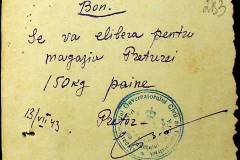 Bon.
283
Se va elibera pentru
magazia Preturei
150 kg paine
13/VII 43
Pretor